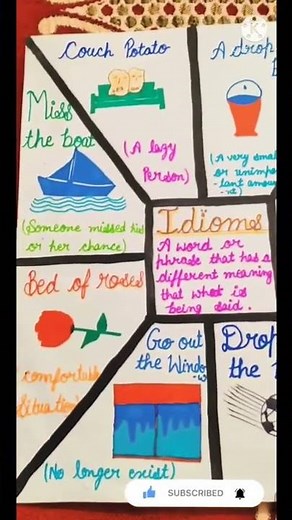 Couch Potato
(A lazy
Person)
A drop
(A very smal
or unimpo
-tant amou
-nt)
Miss
the boat
(Someone missed his
or her chance)
Idioms
A word or
phrase that has a
different meaning
that what is
being said.
Bed of roses
comfortable
Situation
Go out
the Windo
-w
(No longer exist)
Drop
the
SUBSCRIBED